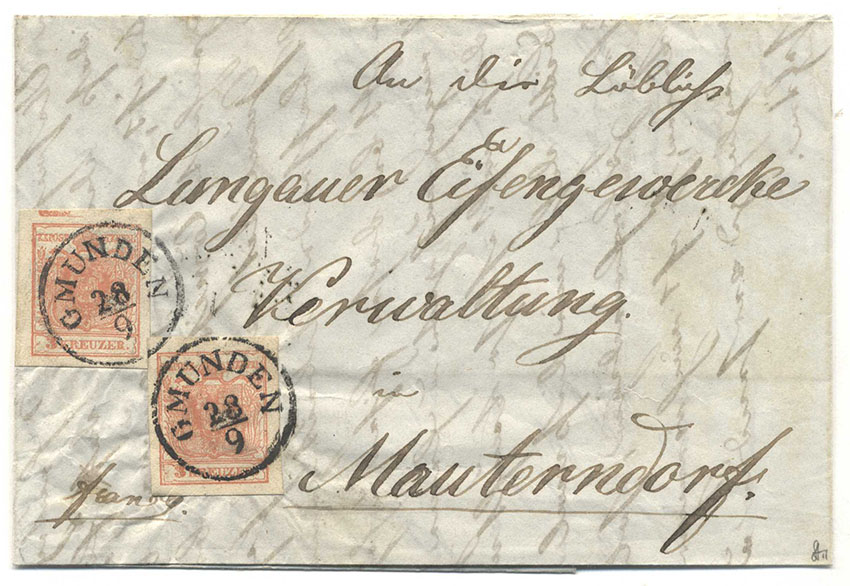 An die Löbliche
Lungauer Eisengewercke
Verwaltung.
in
Mauterndorf.
franco.
GMUNDEN
28
9
KREUZER.
GMUNDEN
28
9
3 KREUZER